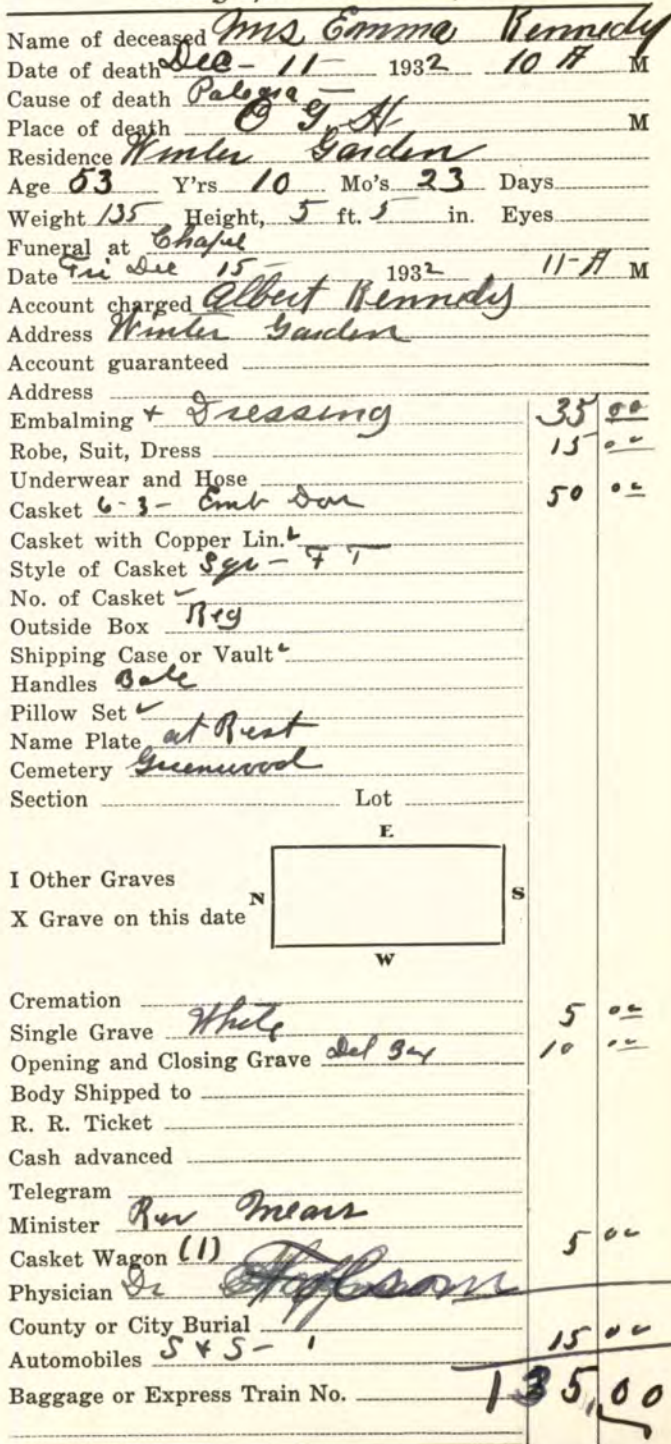 Name of deceased Mrs Emma Kennedy
Date of death Dec - 11 - 1932 10 A M
Cause of death
Place of death O G H M
Residence Winter Garden
Age 53 Y'rs 10 Mo's 23 Days
Weight 135 Height, 5 ft. 5 in. Eyes
Funeral at Chapel
Date Fri Dec 15 - 1932 11-A M
Account charged Albert Kennedy
Address Winter Garden
Account guaranteed
Address
Embalming + Dressing 35 00
Robe, Suit, Dress 15 00
Underwear and Hose
Casket 6-3- Emb 50 00
Casket with Copper Lin.
Style of Casket Sqr - F T
No. of Casket
Outside Box Reg
Shipping Case or Vault
Handles
Pillow Set
Name Plate at Rest
Cemetery Greenwood
Section Lot
E
I Other Graves
N S
X Grave on this date
W
Cremation
Single Grave White 5 00
Opening and Closing Grave 10 00
Body Shipped to
R. R. Ticket
Cash advanced
Telegram
Minister Rev Mears
Casket Wagon (1) 5 00
Physician Dr
County or City Burial
Automobiles S + S - 1 15 00
Baggage or Express Train No. 135,00